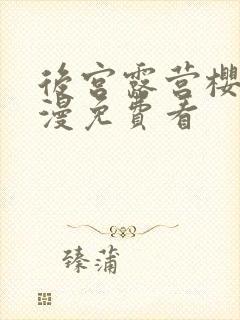 後宮露营樱
漫免費看
臻蒲